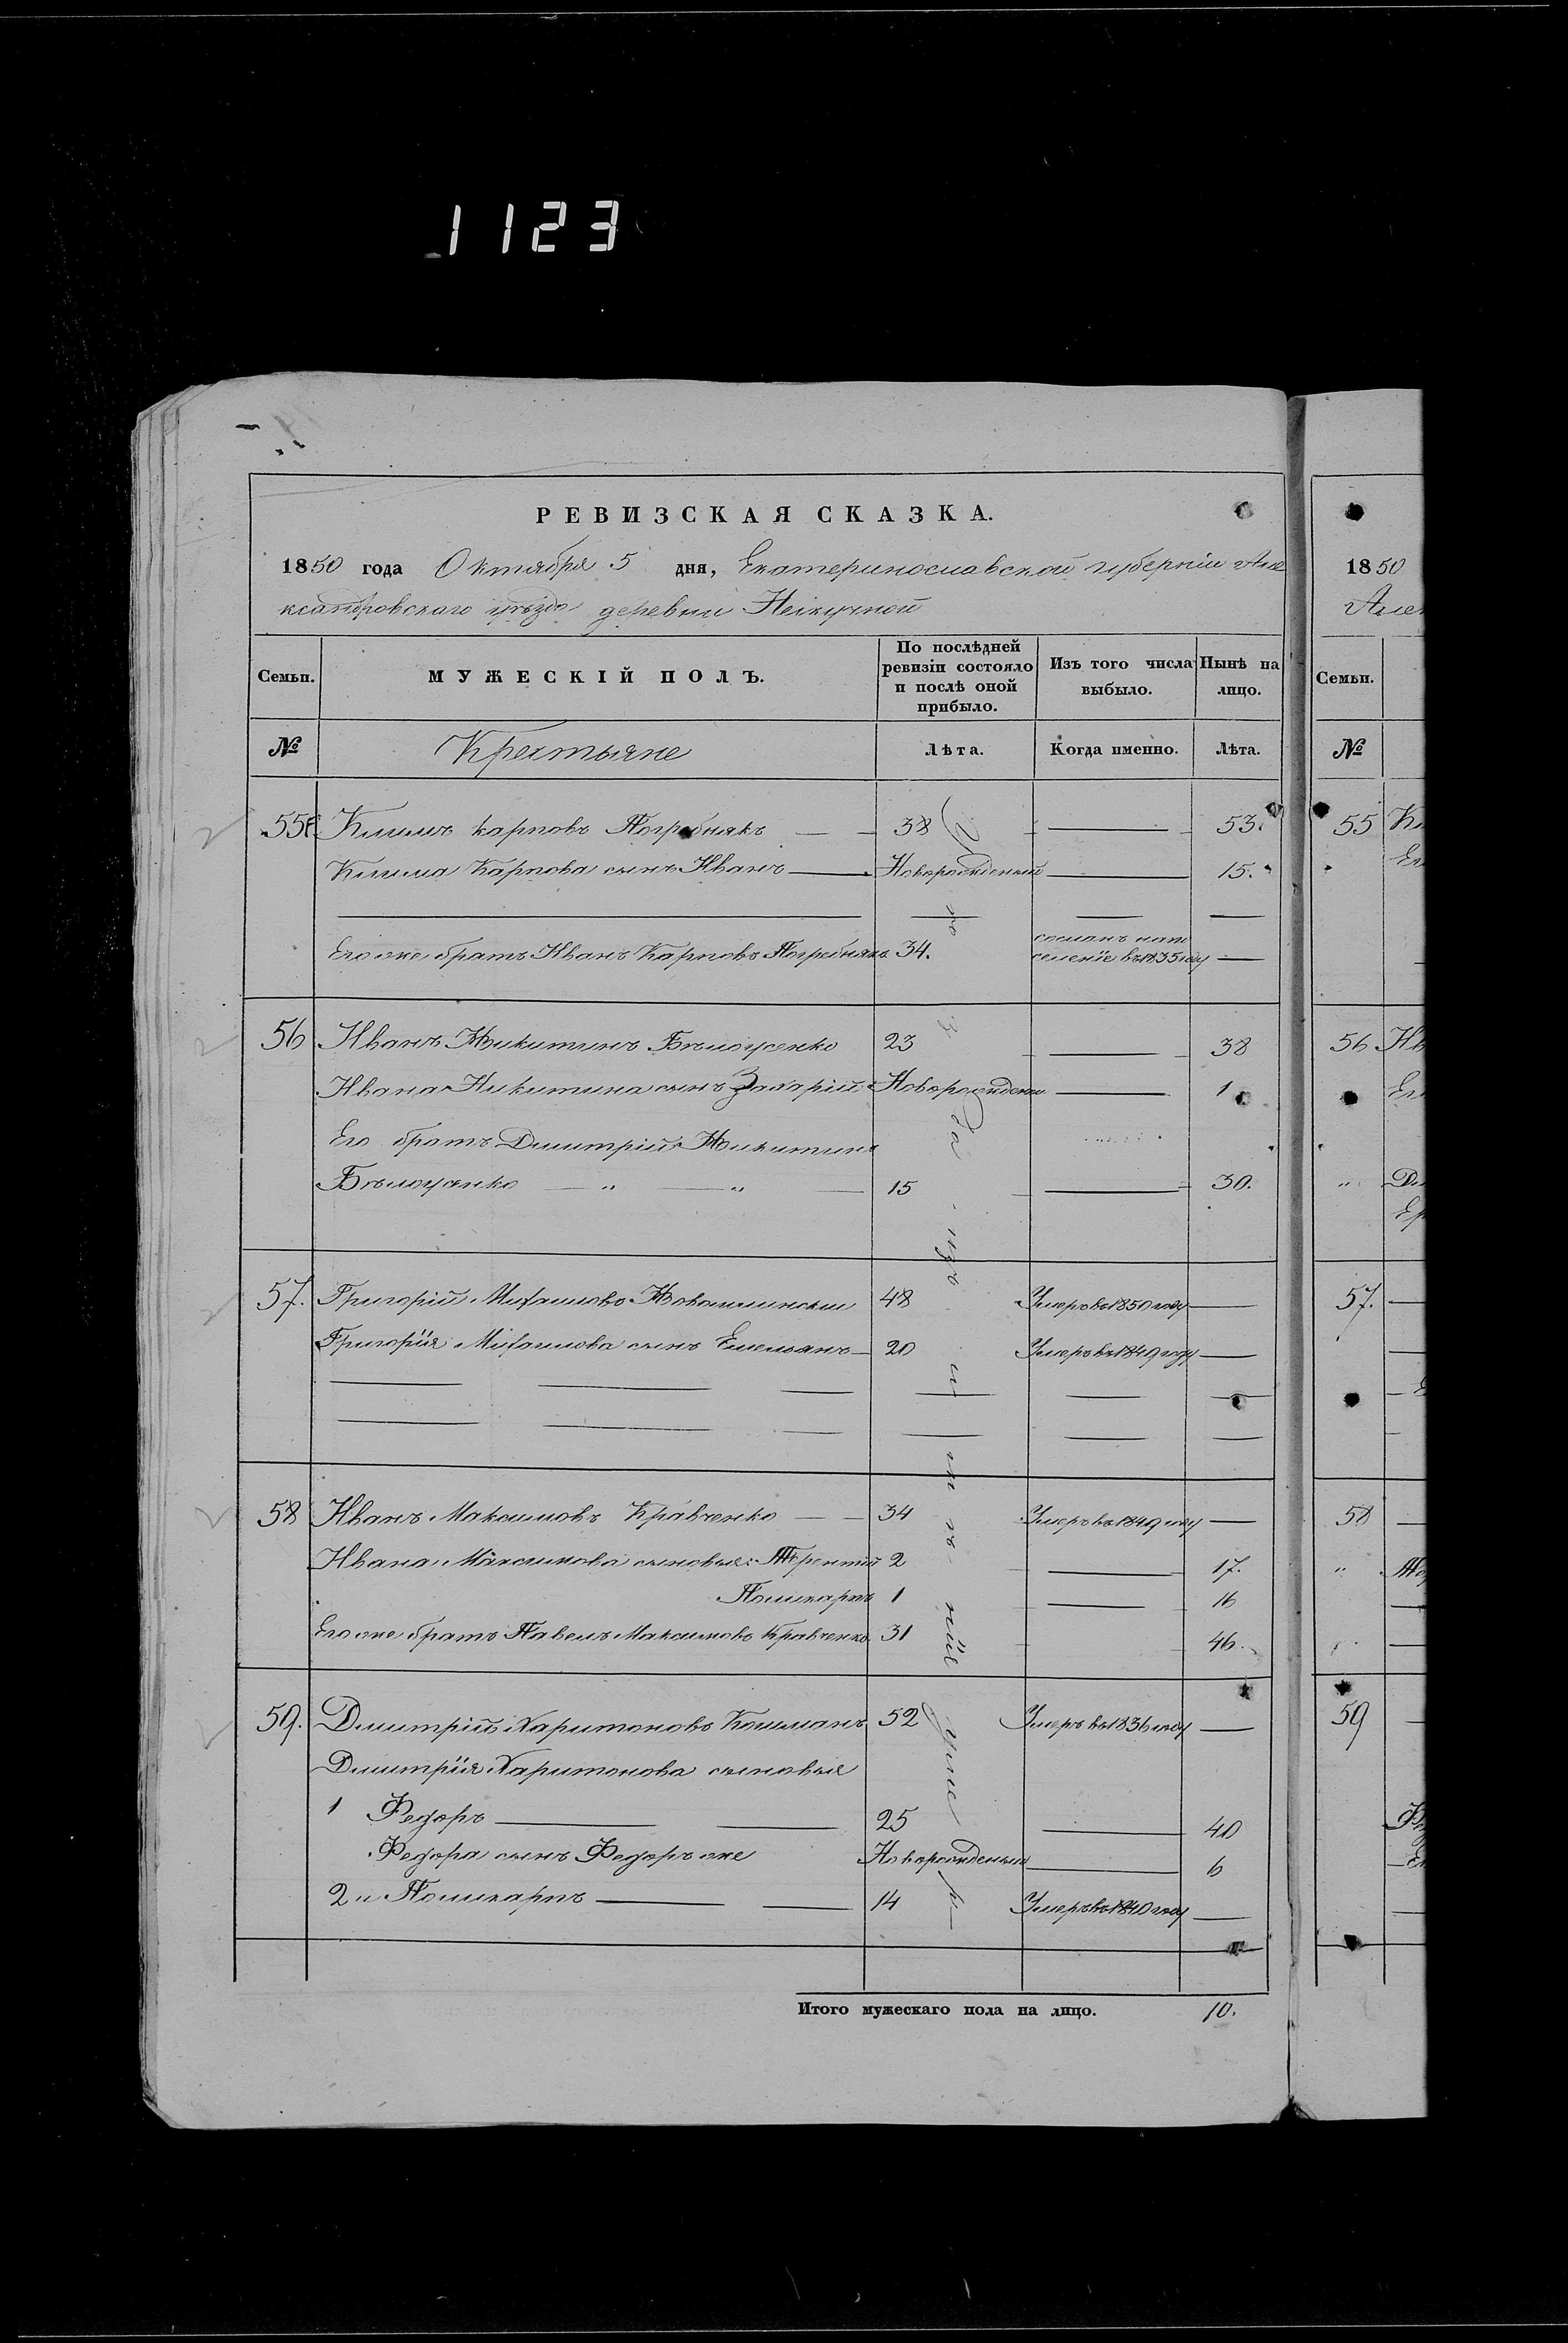 1123
РЕВИЗСКАЯ СКАЗКА.
1850 года Октября 5 дня, Екатеринославской губерніи Але
ксандровскаго уѣзда деревни Нескучной
Семьи.
МУЖЕСКІЙ ПОЛЪ.
По послѣдней ревизіи состояло и послѣ оной прибыло.
Изъ того числа выбыло.
Нынѣ на лицо.
№ Крестьяне Лѣта. Когда именно. Лѣта.
55 Климъ Карповъ Погребнякъ 38 53.
Клима Карпова сынъ Иванъ Новорожденый 15.
Его же братъ Иванъ Карповъ Погребнякъ 34. сосланъ на по
селеніе въ 1835 году
56 Иванъ Никитинъ Бѣлоусенко 23 38
Ивана Никитина сынъ Захарій Новорожден 1
Его братъ Дмитрій Никитинъ
Бѣлоусенко " " 15 30.
57. Григорій Михаиловъ 48 Умеръ въ 1850 году
Григорія Михаилова сынъ Емельянъ 20 Умеръ въ 1849 году
58 Иванъ Максимовъ Кравченко 34 Умеръ въ 1849 году
Ивана Максимова сыновья: Терентій 2 17.
Поликарпъ 1 16
Его же братъ Павелъ Максимовъ Кравченко 31 46.
59. Дмитрій Харитоновъ Кошманъ 52 Умеръ въ 1836 году
Дмитрія Харитонова сыновья
1 Федоръ 25 40
Федора сынъ Федоръ же Новорожденый 6
2 и Поликарпъ 14 Умеръ въ 1840 году
Итого мужескаго пола на лицо. 10.
1850
Але
Семьи.
№
55 Кл
56 Ив
" Д
57.
58
"
59